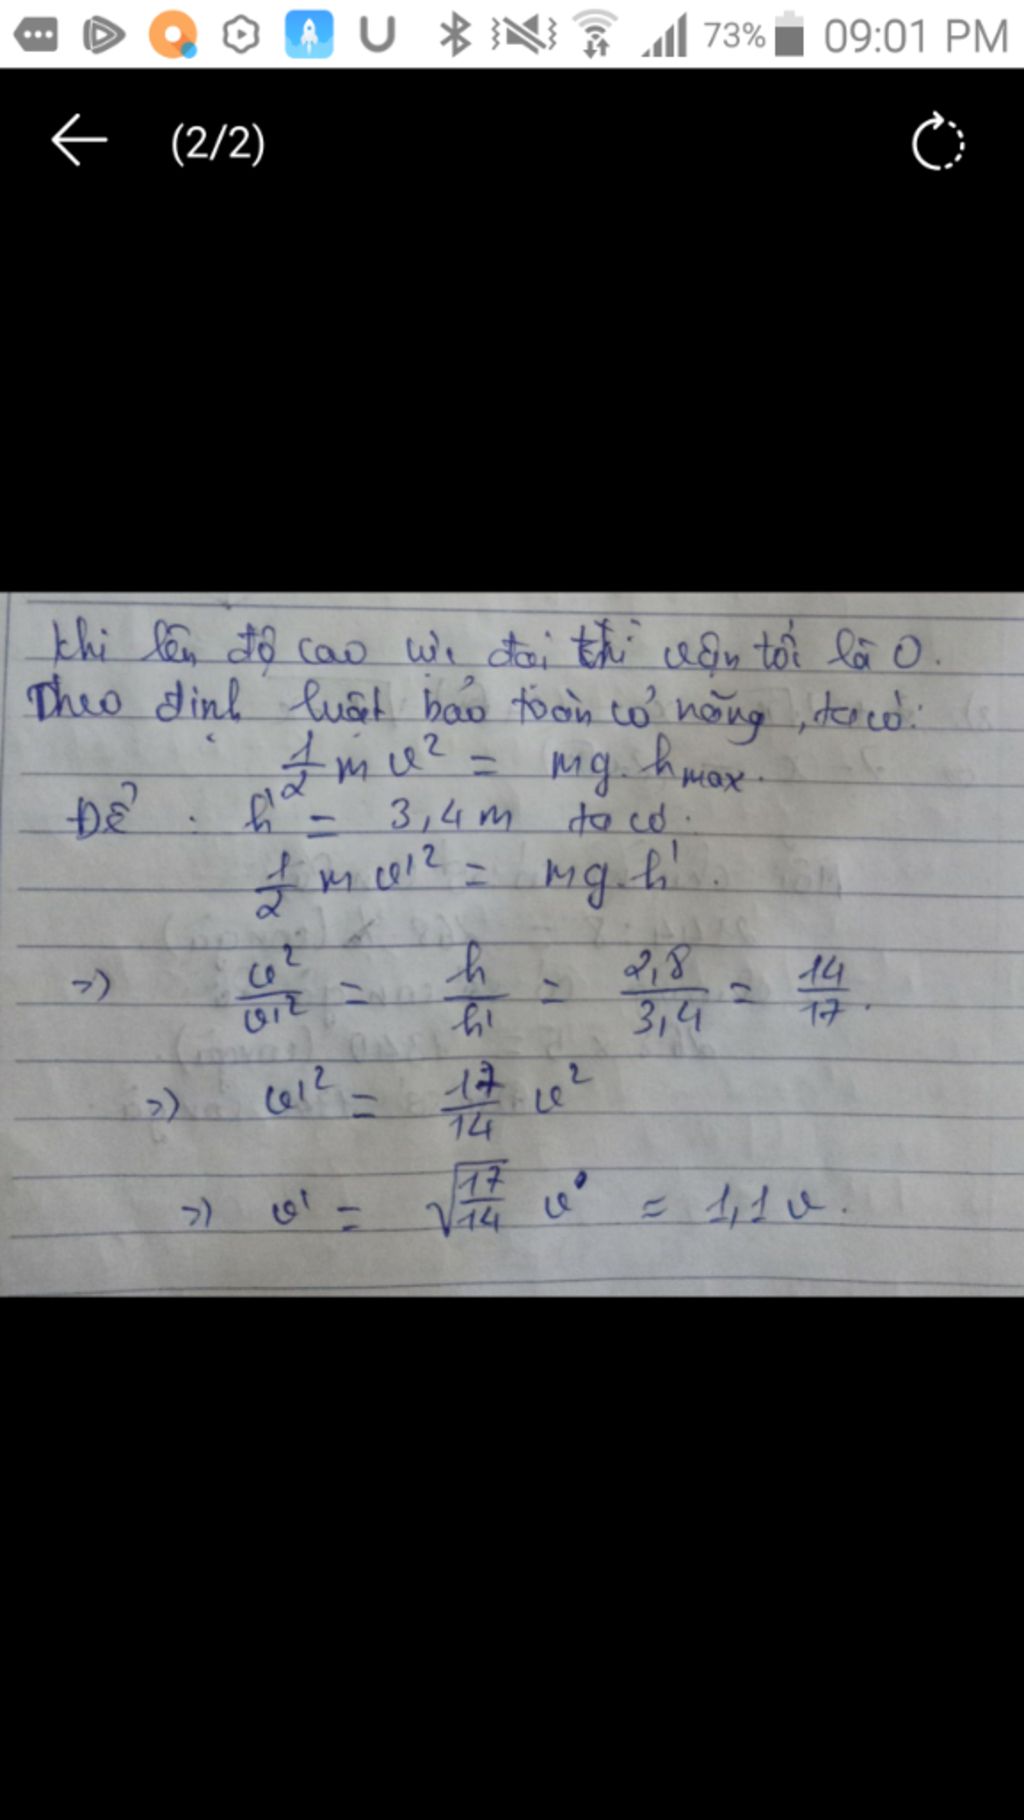 73% 09:01 PM
(2/2)
Khi lên độ cao cực đại thì vận tốc là 0.
Theo định luật bảo toàn cơ năng, ta có:
1/2 m v² = mg.hmax.
Để : h' = 3,4m ta có:
1/2 m v'² = mg.h'.
=> v²/v'² = h/h' = 2,8/3,4 = 14/17.
=> v'² = 17/14 v²
=> v' = √17/14 v = 1,1 v.